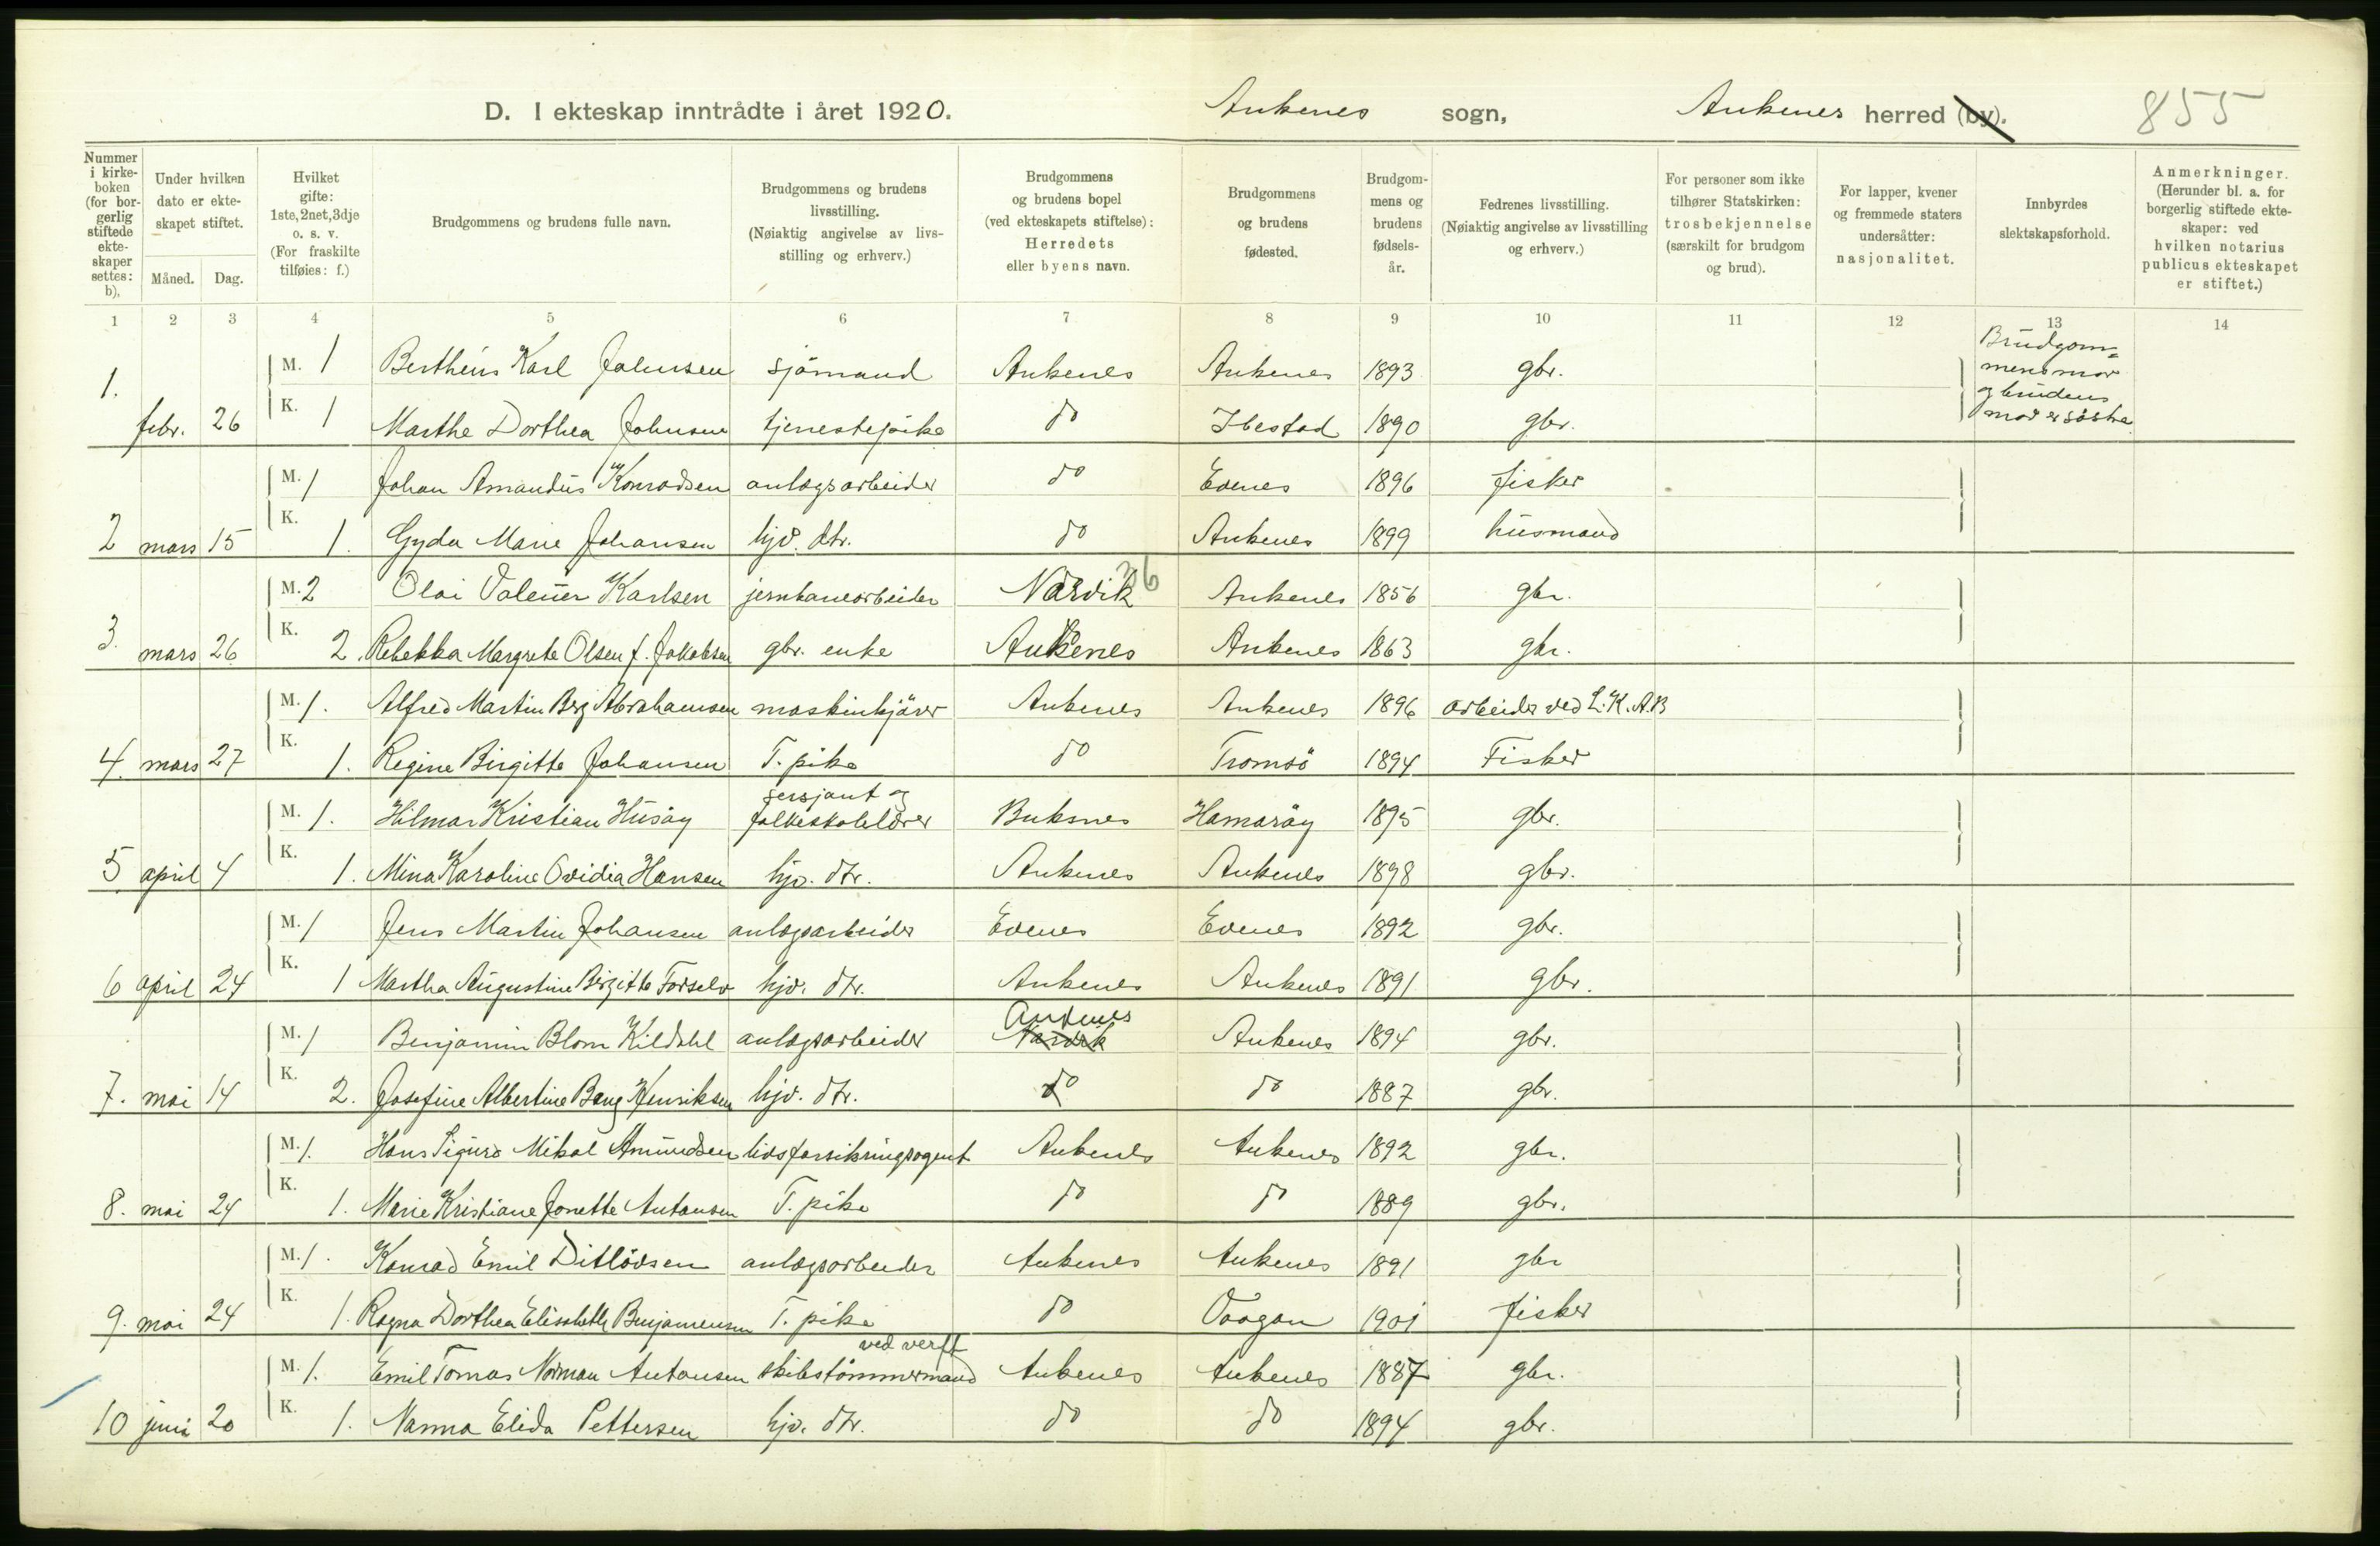 D. I ekteskap inntrådte i året 1920. Ankenes sogn, Ankenes herred (by). 855
Nummer i kirke-boken (for bor-gerlig stiftede ekte-skaper settes: b).
Under hvilken dato er ekte-skapet stiftet.
Måned. Dag.
Hvilket gifte: 1ste, 2net, 3dje o. s. v. (For fraskilte tilføies: f.)
Brudgommens og brudens fulle navn.
Brudgommens og brudens livsstilling. (Nøiaktig angivelse av livs-stilling og erhverv.)
Brudgommens og brudens bopel (ved ekteskapets stiftelse): Herredets eller byens navn.
Brudgommens og brudens fødested.
Brudgom-mens og brudens fødsels-år.
Fedrenes livsstilling. (Nøiaktig angivelse av livsstilling og erhverv.)
For personer som ikke tilhører Statskirken: trosbekjennelse (særskilt for brudgom og brud).
For lapper, kvener og fremmede staters undersåtter: nasjonalitet.
Innbyrdes slektskapsforhold.
Anmerkninger. (Herunder bl. a. for borgerlig stiftede ekte-skaper: ved hvilken notarius publicus ekteskapet er stiftet.)
1 2 3 4 5 6 7 8 9 10 11 12 13 14
1. M. 1 Bertheus Karl Johnsen sjömand Ankenes Ankenes 1893 gbr. Brudgom=
mens mor
og brudens
mor er söstre
febr. 26 K. 1 Marthe Dorthea Johnsen tjenestepike do Ibestad 1890 gbr.
M. 1 Johan Amandus Konradsen anlægsarbeider do Evenes 1896 fisker
2 mars 15 K. 1. Gyda Marie Johansen hjv. dtr. do Ankenes 1899 husmand
M. 2 Olai Valeur Karlsen jernbanearbeider Narvik 26 Ankenes 1856 gbr.
3. mars 26 K. 2. Rebekka Margrete Olsen f. Jakobsen gbr. enke Ankenes Ankenes 1863 gbr.
M. 1. Alfred Martin Berg Abrahamsen maskinkjörer Ankenes Ankenes 1896 arbeider ved L.K.A.B
4. mars 27 K. 1. Regine Birgitte Johansen T. pike do Tromsö 1894 Fisker
sersjant og
M. 1. Hilmar Kristian Husöy folkeskolelærer Buksnes Hamaröy 1895 gbr.
5 april 4 K. 1. Mina Karoline Ovidia Hansen hjv. dtr. Ankenes Ankenes 1898 gbr.
M. 1 Jens Martin Johansen anlægsarbeider Evenes Evenes 1892 gbr.
6 april 24 K. 1 Martha Augustine Birgitte Forselv hjv. dtr. Ankenes Ankenes 1891 gbr.
Ankenes
M. 1 Benjamin Blom Kildahl anlægsarbeider Narvik Ankenes 1894 gbr.
7. mai 14 K. 2. Josefine Albertine Bang Henriksen hjv. dtr. do do 1887 gbr.
M. 1. Hans Sigurd Mikal Amundsen livsforsikringsagent Ankenes Ankenes 1892 gbr.
8. mai 24 K. 1. Marie Kristiane Jonette Antonsen T. pike do do 1889 gbr.
M. 1. Konrad Emil Ditlövsen anlægsarbeider Ankenes Ankenes 1891 gbr
9. mai 24 K. 1. Ragna Dorthea Elisabeth Benjaminsen T. pike do Vaagan 1901 fisker
ved verft
M. 1. Emil Tomas Norman Antonsen skibstömmermand Ankenes Ankenes 1887 gbr.
10 juni 20 K. 1. Nanna Elida Pettersen hjv. dtr. do do 1894 gbr.